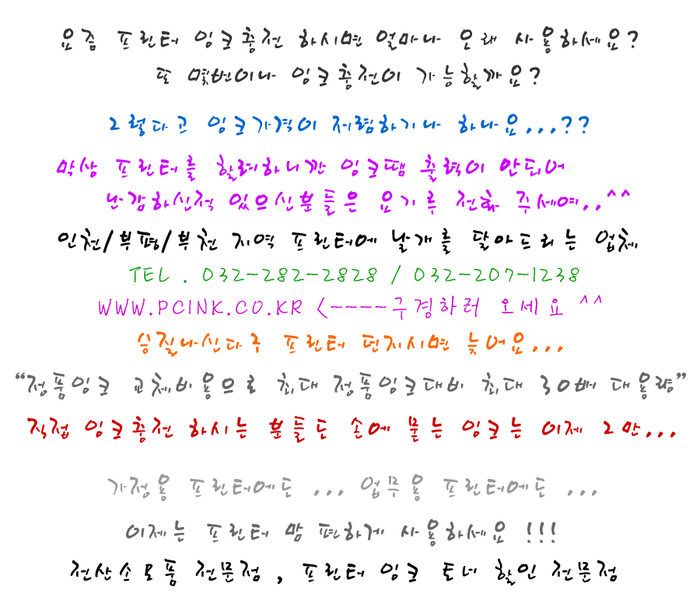 요즘 프린터 잉크충전 하시면 얼마나 오래 사용하세요?
또 몇번이나 잉크충전이 가능할까요?
그렇다고 잉크가격이 저렴하기나 하나요...??
막상 프린터를 할려하니깐 잉크땜 출력이 안되어
난감하신적 있으신분들은 요기루 전화 주세여..^^
인천/부평/부천 지역 프린터에 날개를 달아드리는 업체
TEL . 032-282-2828 / 032-207-1238
WWW.PCINK.CO.KR <----구경하러 오세요 ^^
승질나신다구 프린터 던지시면 늦어요...
“정품잉크 교체비용으로 최대 정품잉크대비 최대 30배 대용량”
직접 잉크충전 하시는 분들도 손에 묻는 잉크는 이제 그만...
가정용 프린터에도 ... 업무용 프린터에도 ...
이제는 프린터 맘 편하게 사용하세요 !!!
전산소모품 전문점 , 프린터 잉크 토너 할인 전문점